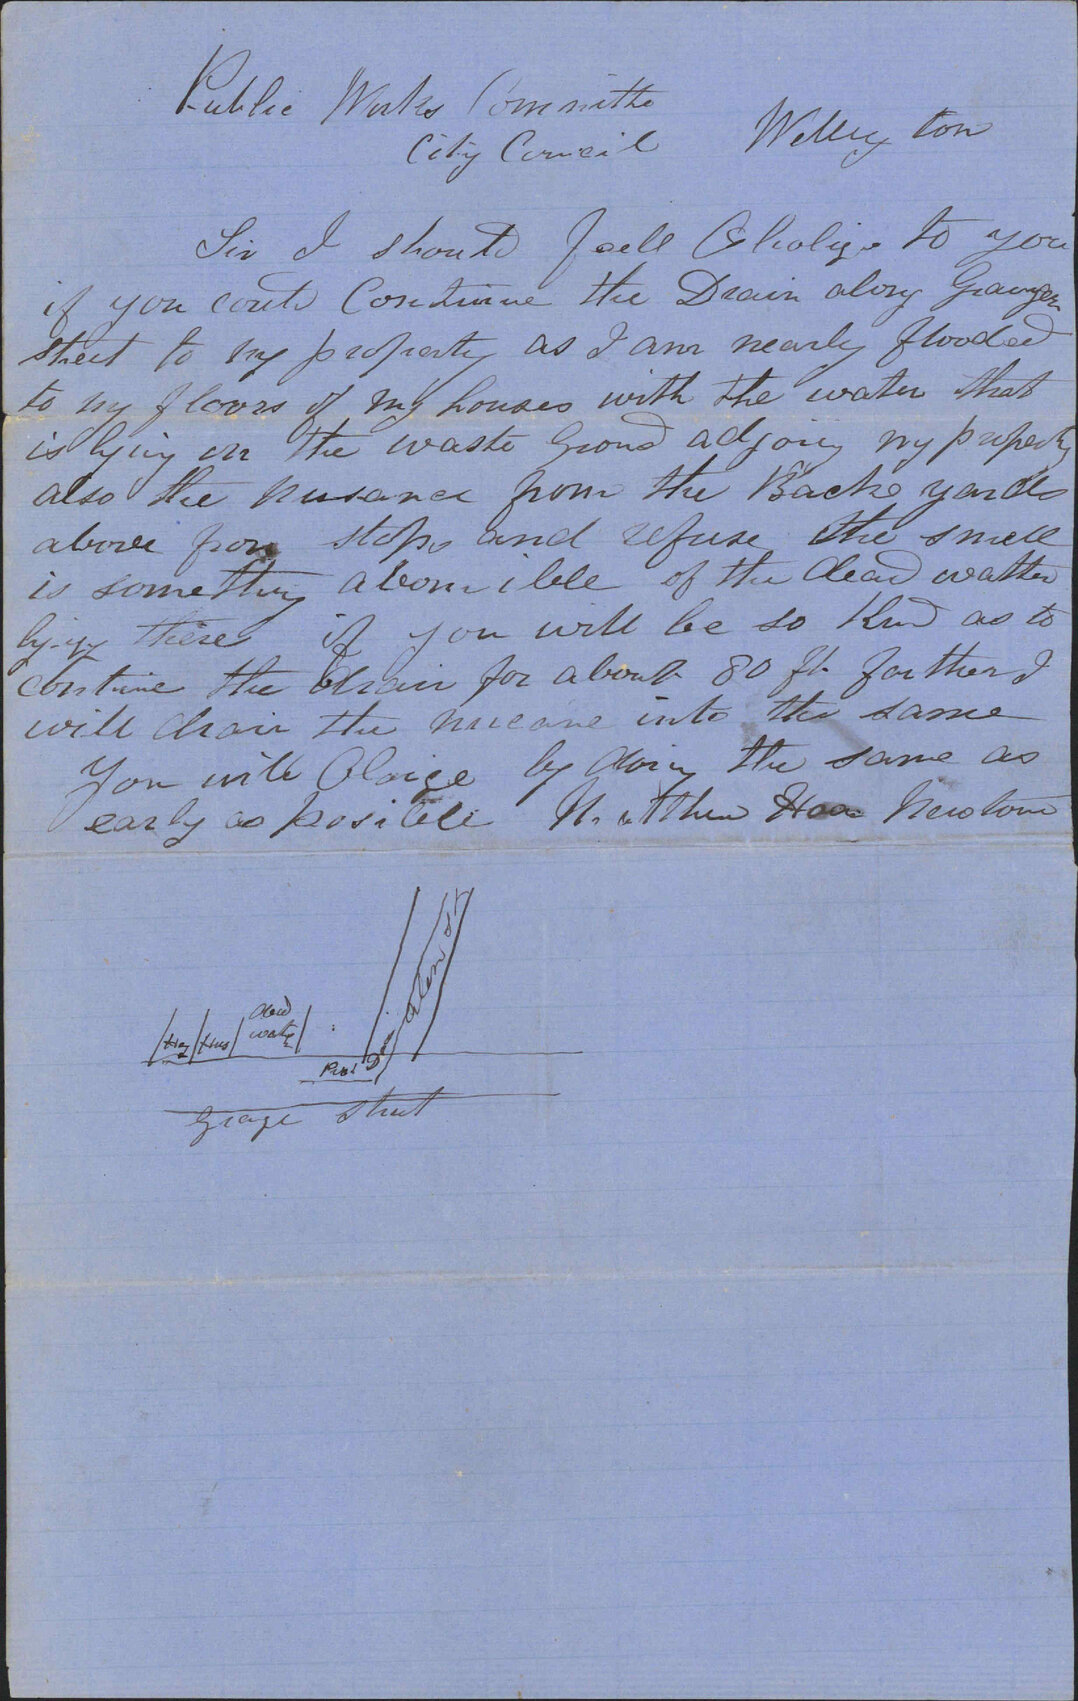 Public Works Committe
City Council Wellington
Sir I should feell Obolige to you
if you could Continue the Drain along Grainger
street to my property as I am nearly flooded
to my floors of my houses with the water that
is lying on the waste Ground adjoing my property
also the nusance from the Backe yards
above from slops and refuse the smell
is something abomibble of the dead watter
lying there if you will be so Kind as to
continue the drain for about 80 ft farther I
will drain the nucane into the same
You will Oblige by doing the same as
early as posibele Matthew Newtown
Alen St
dead
water
Hos Hus
Pres Drain
Grage Street